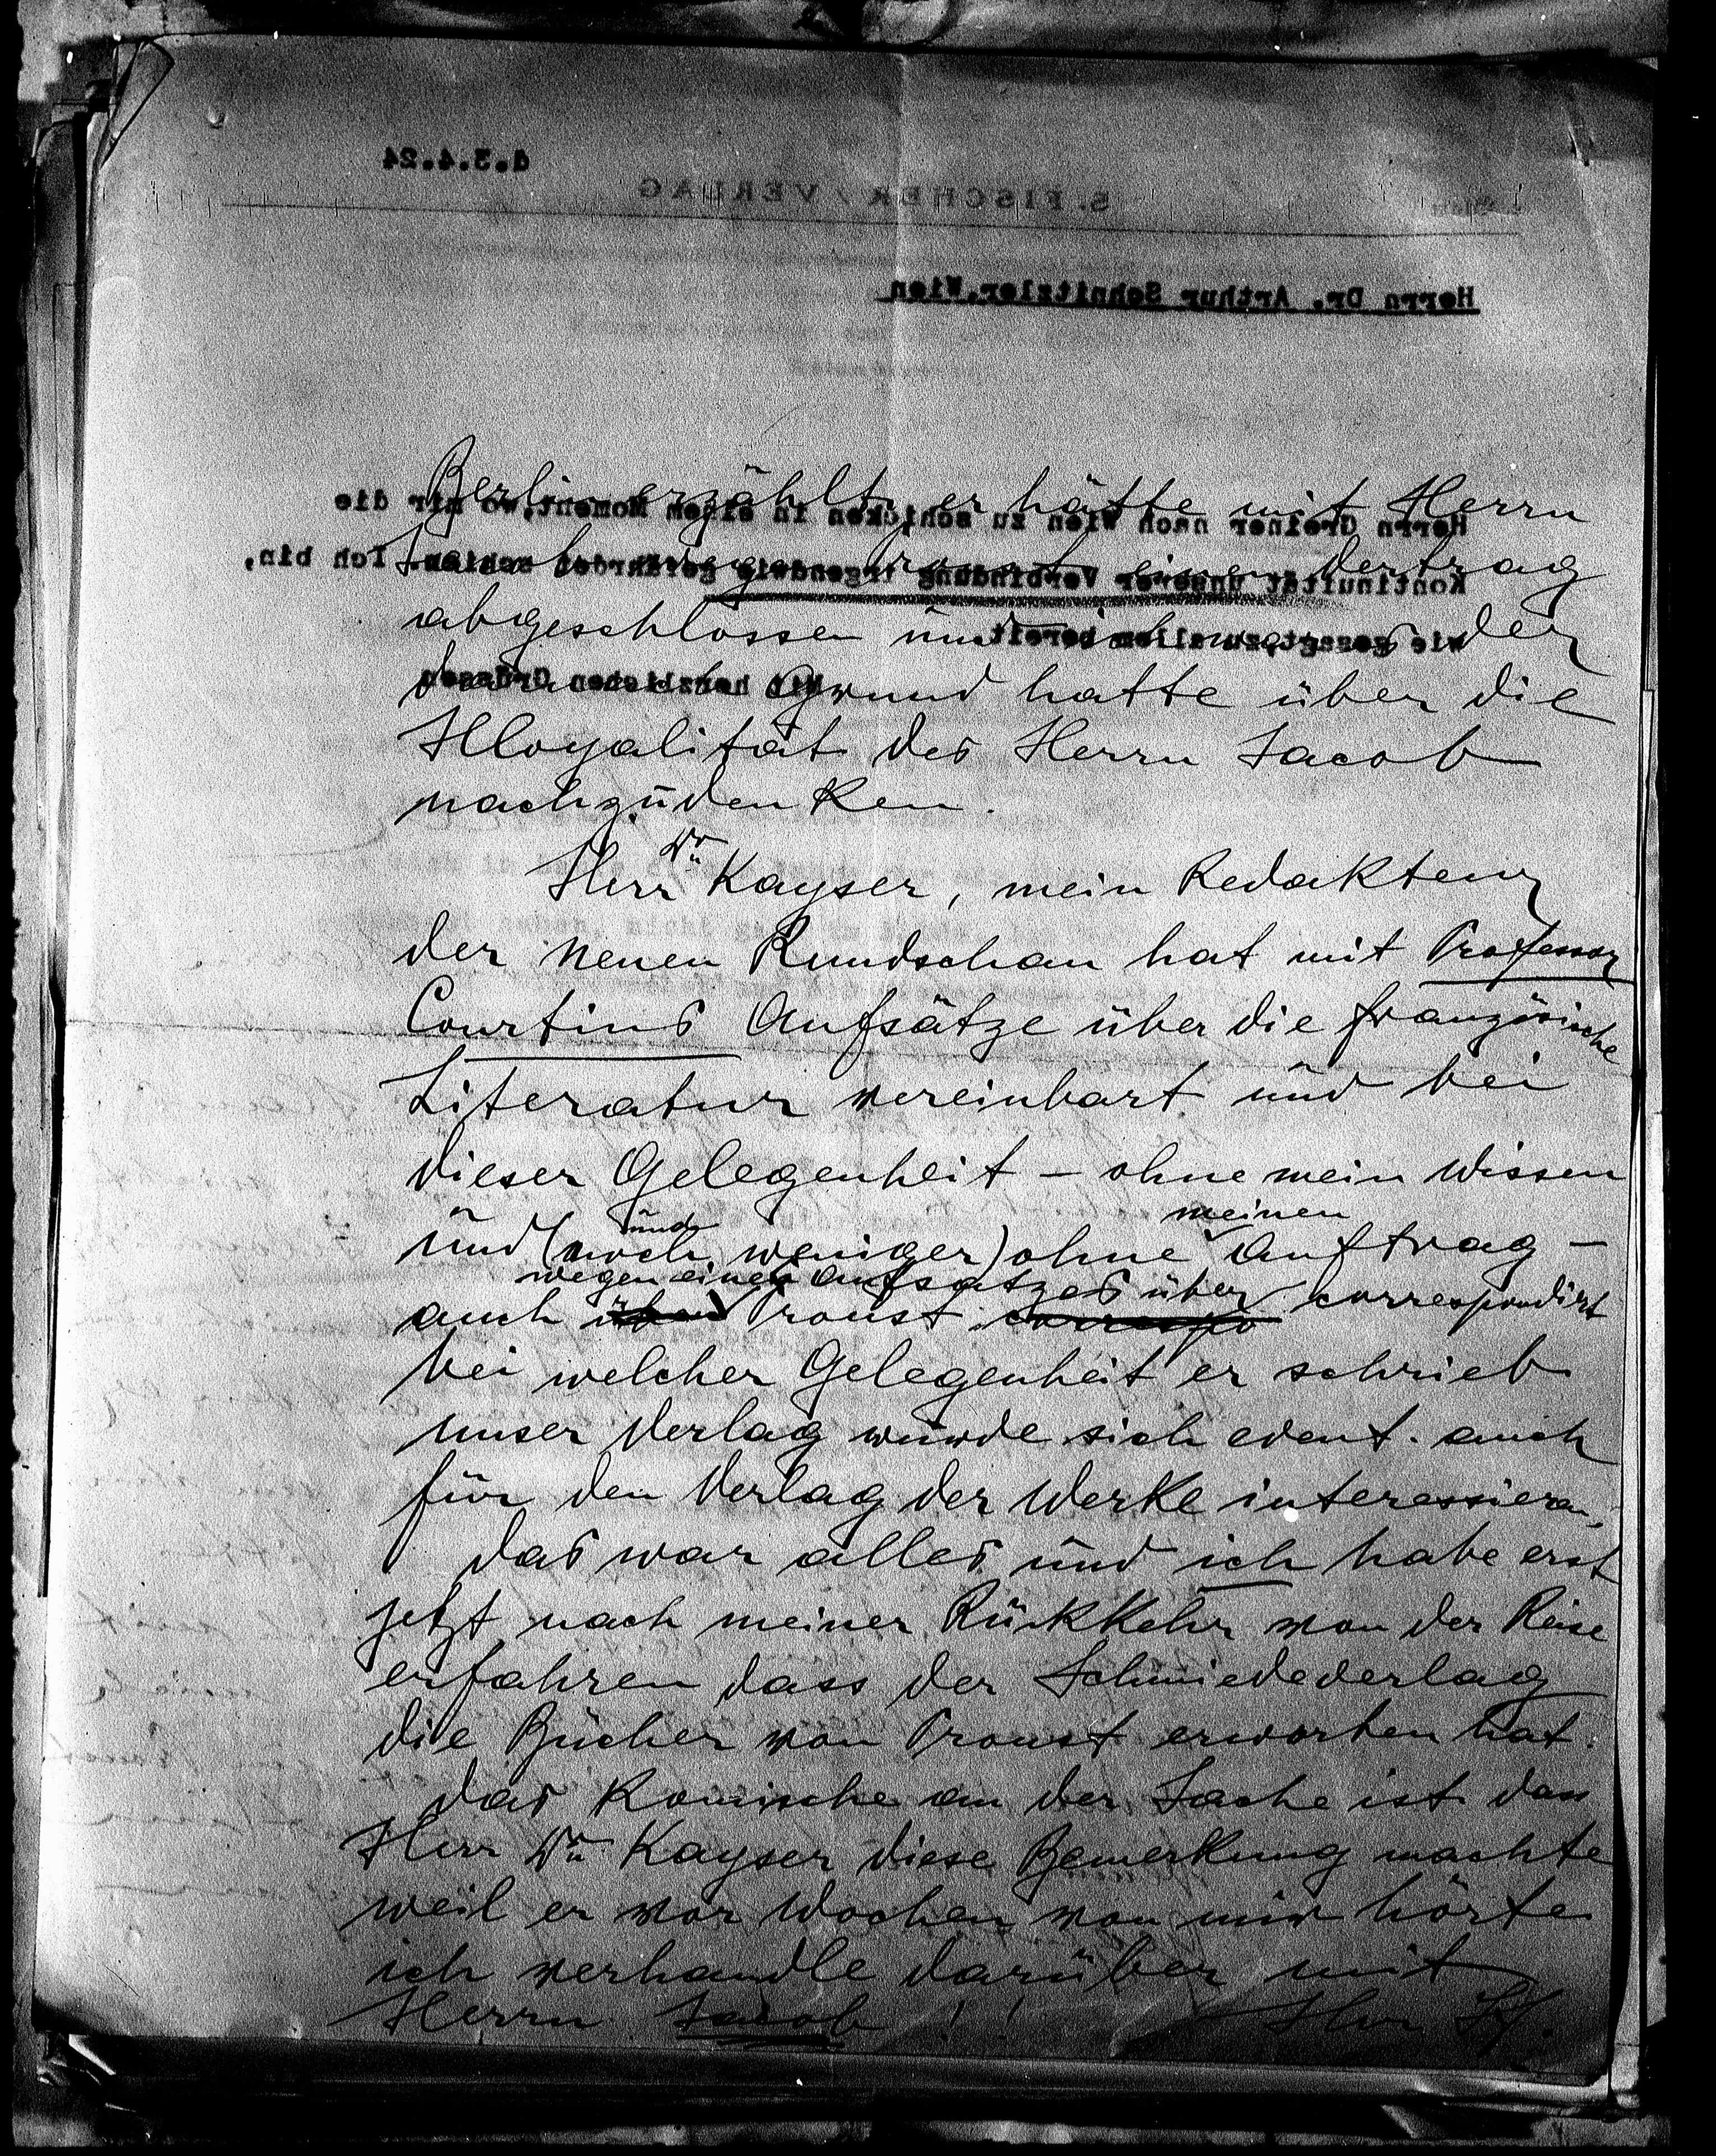 d.3.4.24
S. FISCHER / VERLAG
Herrn Dr. Arthur Schnitzler, Wien
Herrn Greiner nach Wien zu schicken in einem Moment, wo mir die
Kontinuität unserer Verbindung irgendwie gefährdet schien. Ich bin,
wie gesagt, zu allem bereit.
Mit herzlichen Grüssen
Berlin erzählt, er hätte mit Herrn
Jacob wegen Proust einen Vertrag
abgeschlossen und der
Grund hatte über die
Illoyalität des Herrn Jacob
nachzudenken.
Herr Dr Kayser, mein Redakteur
der neuen Rundschau hat mit Professor
Courtius Aufsätze über die französische
Literatur vereinbart und bei
dieser Gelegenheit – ohne mein Wissen
und (und noch weniger) ohne meinen Auftrag –
auch über wegen eines Aufsatzes über Proust correspo correspondirt
bei welcher Gelegenheit er schrieb
unser Verlag würde sich event. auch
für den Verlag der Werke interessieren,
das war alles und ich habe erst
jetzt nach meiner Rückkehr von der Reise
erfahren dass der Schmiedeverlag
die Bücher von Proust erworben hat.
das Komische an der Sache ist dass
Herr Dr Kayser diese Bemerkung machte
weil er vor Wochen von mir hörte
ich verhandle darüber mit
Herrn Jacob !!